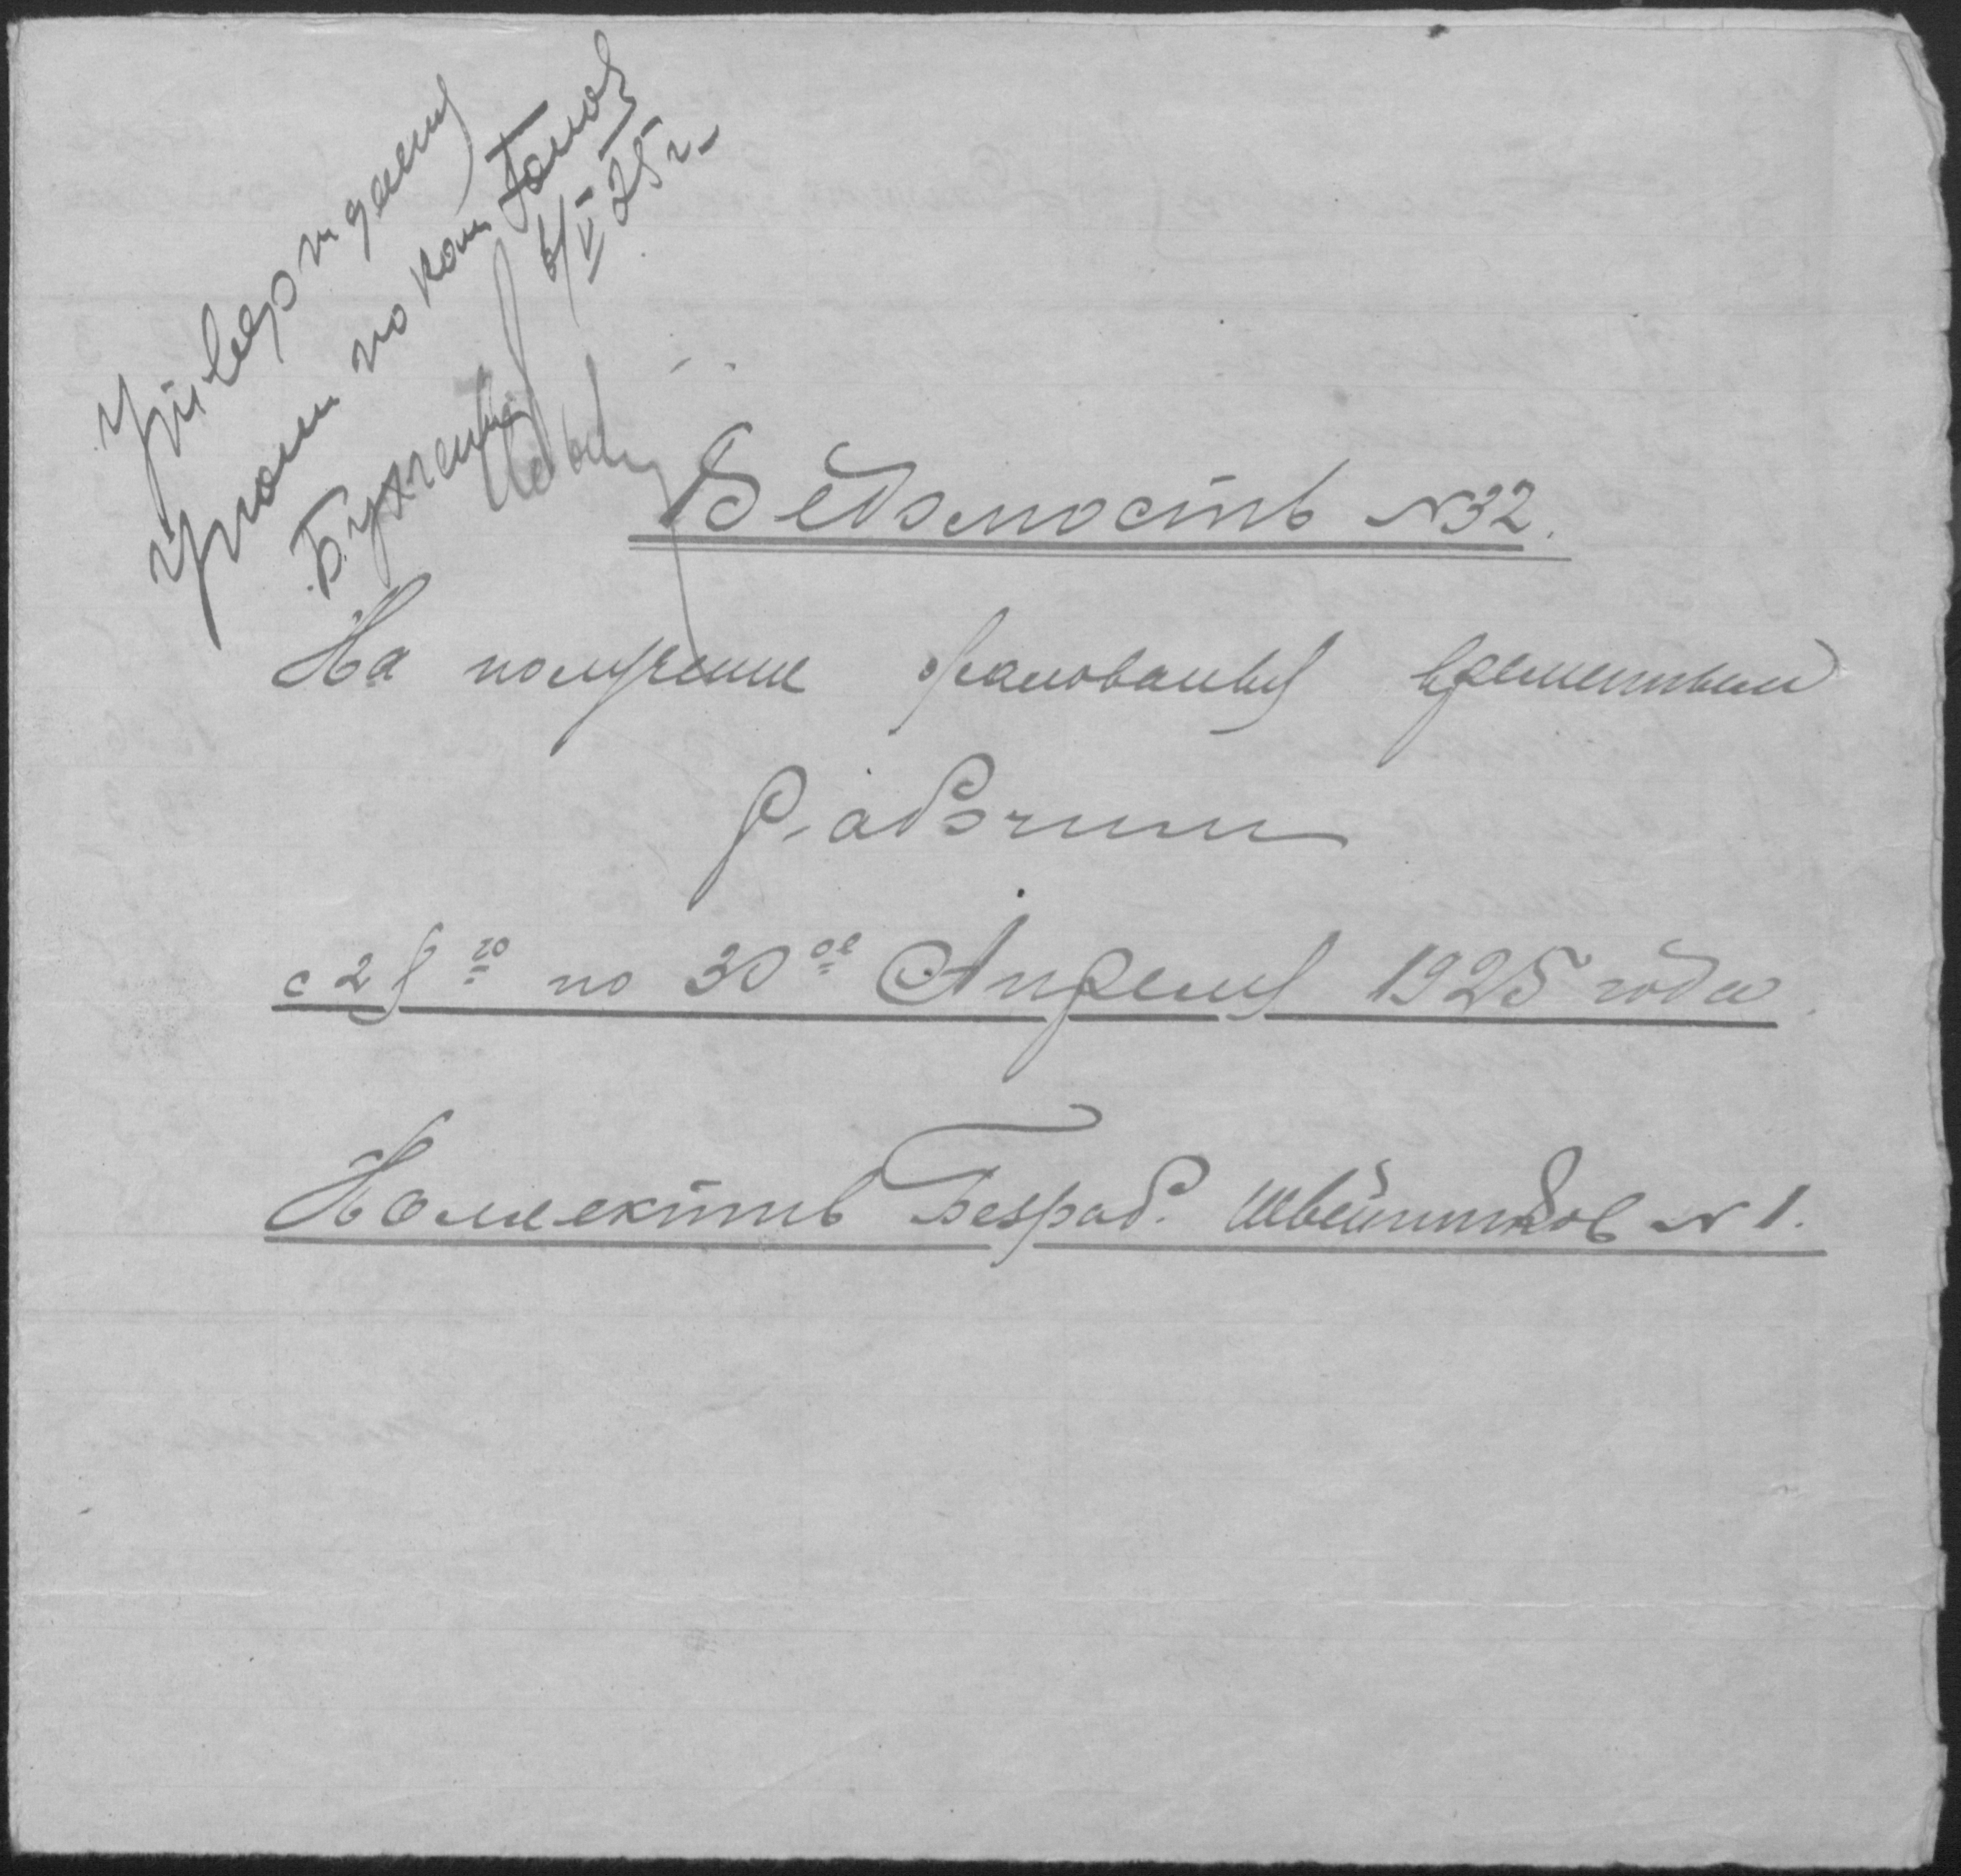 Утверждения
Упом по ком Галов
6/V 25 г.
Бухгалтер
Ведомость №32.
На получение жалованья временным
Рабочим
с 28го по 30ое Апреля 1925 года
Коллектив Безраб. Швейников №1.